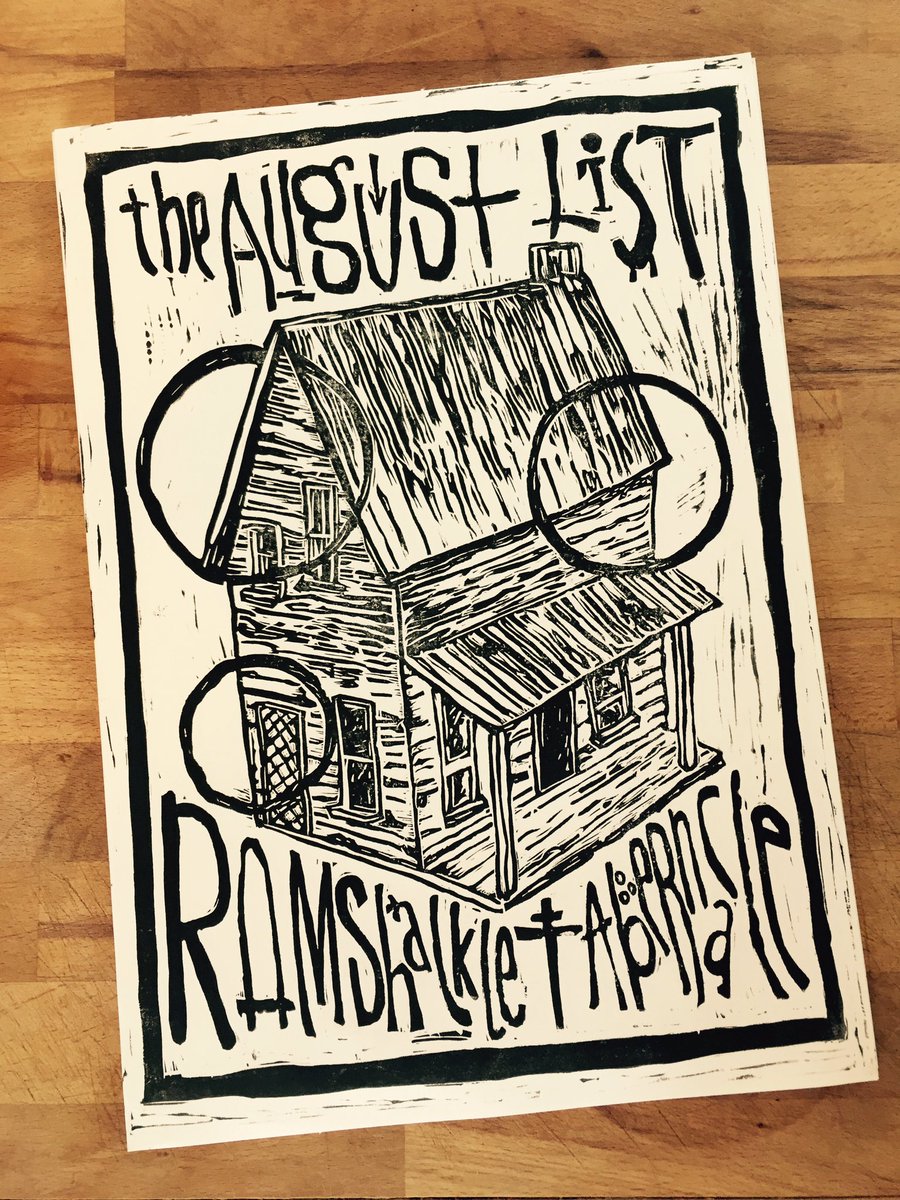 the AUgUSt LiST
RAMShackle tAbeRNacle